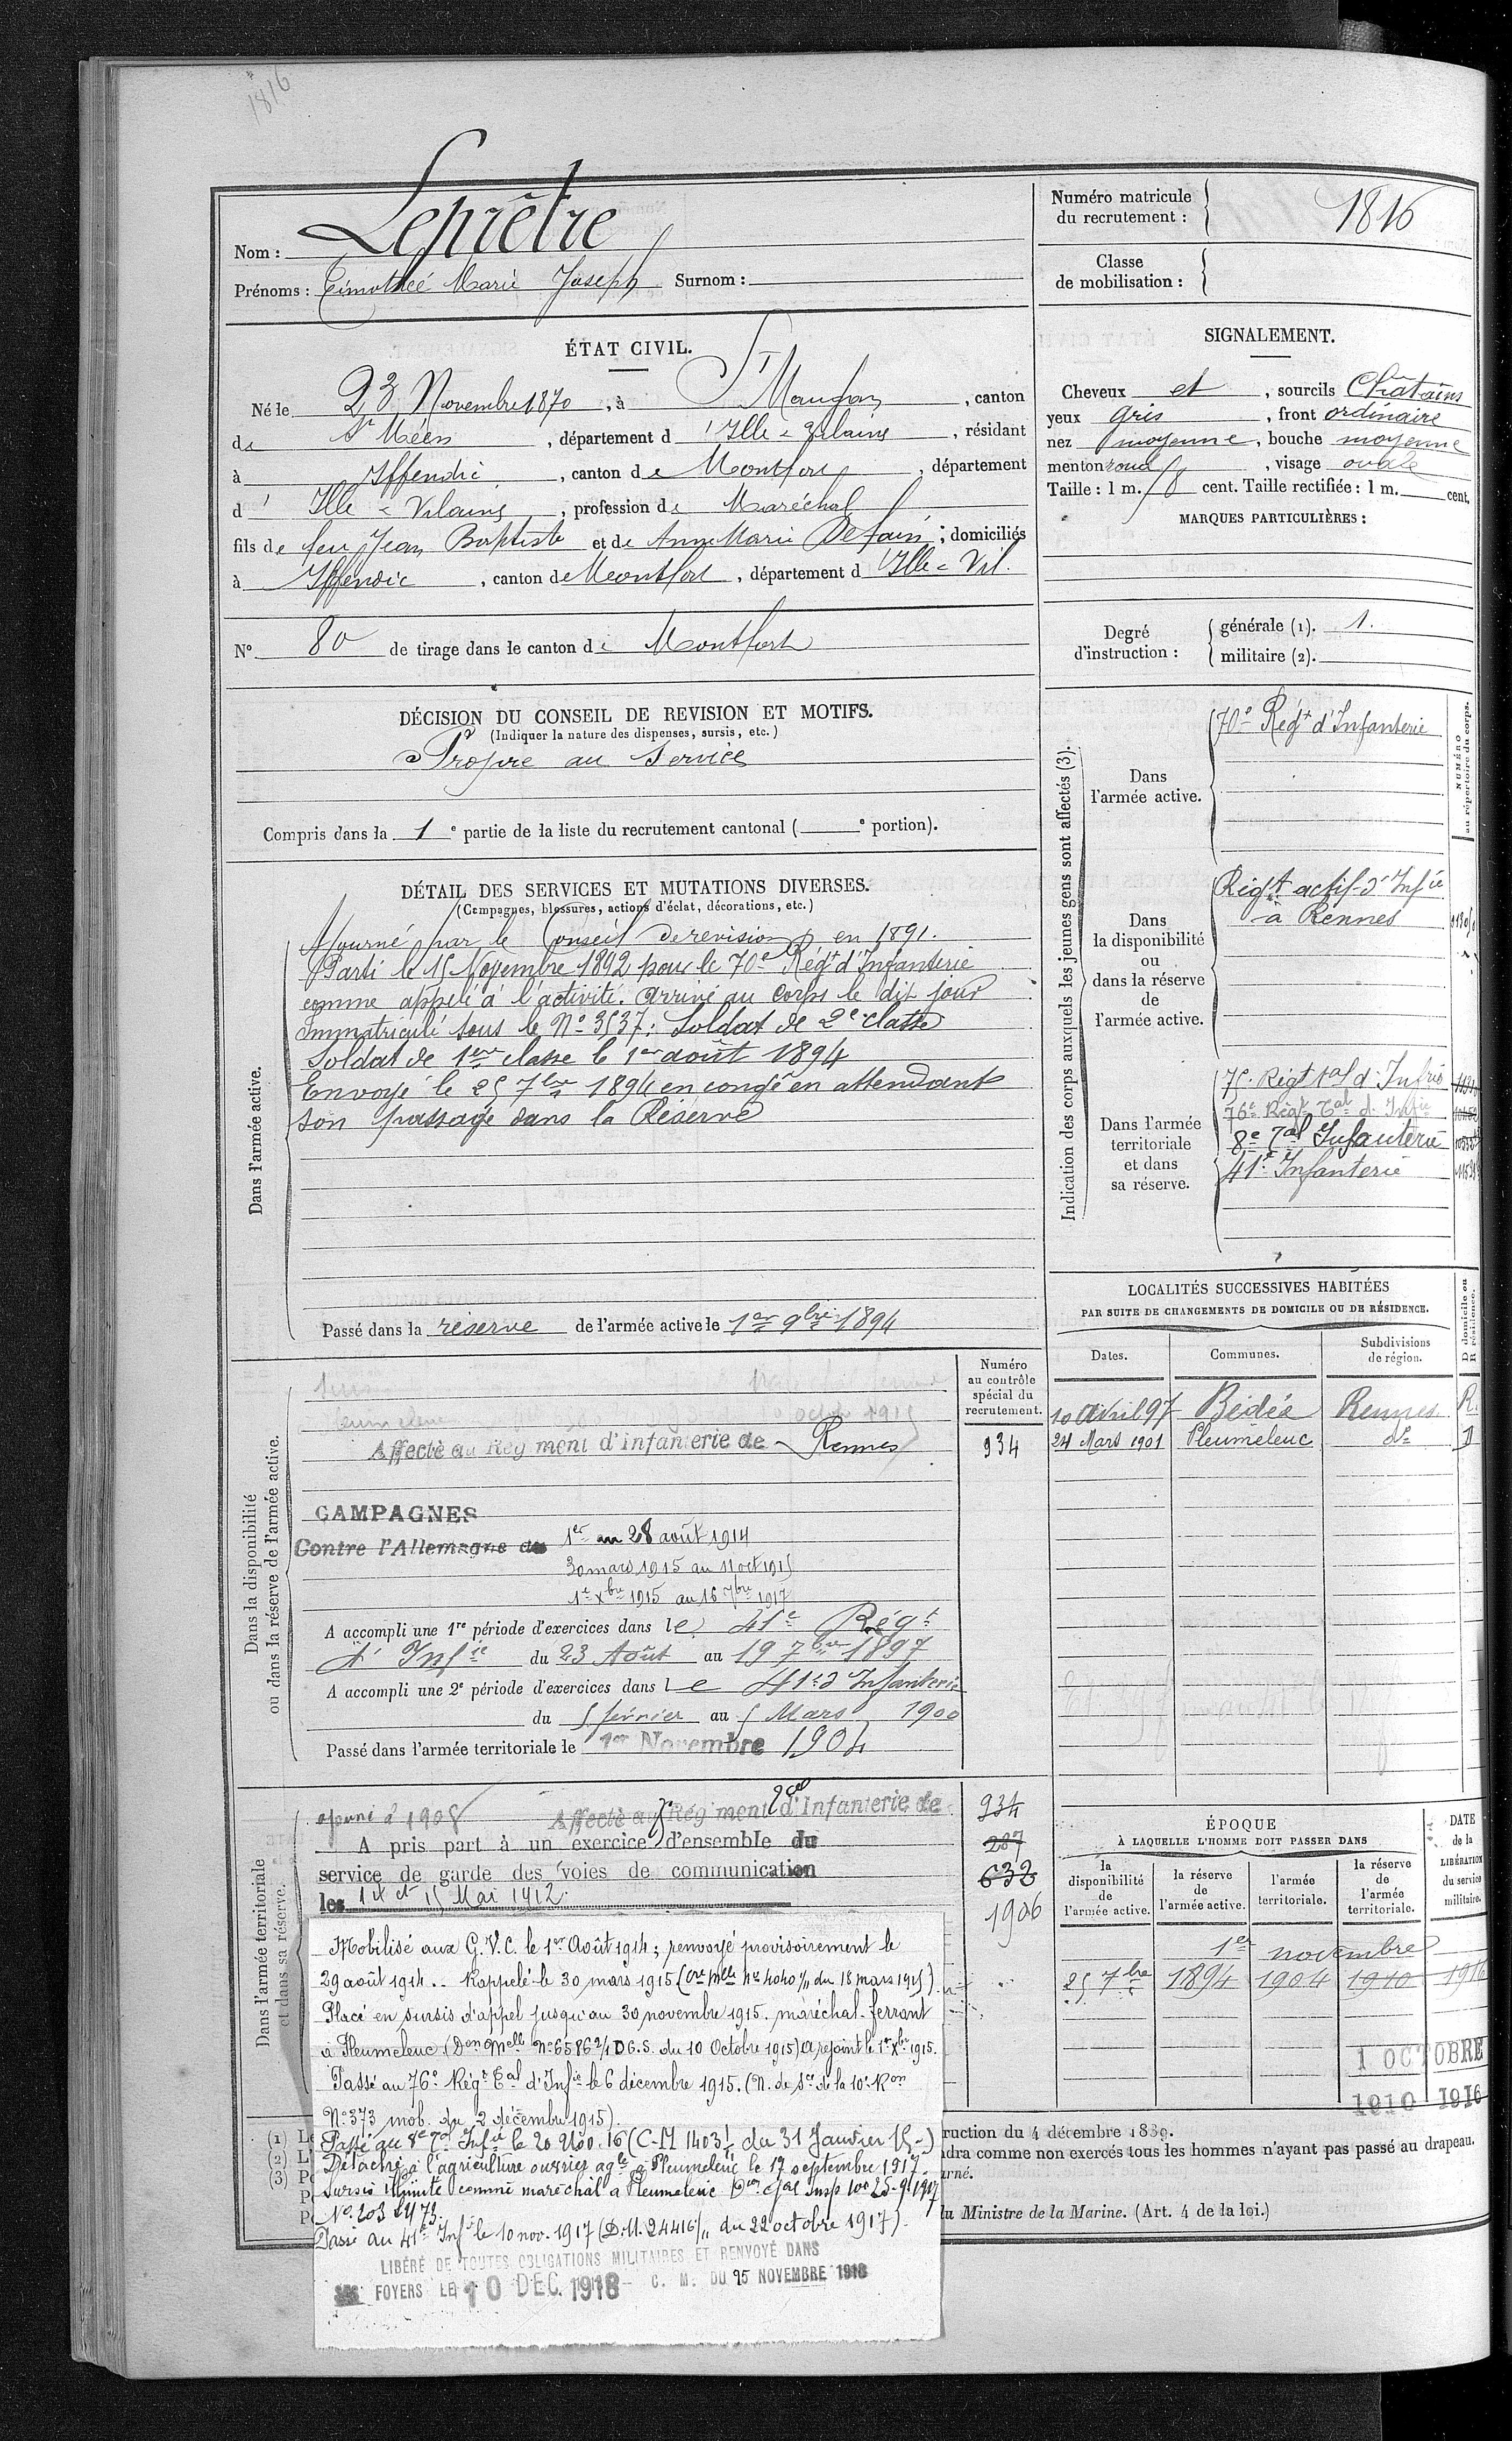 1816
Nom : Leprêtre
Prénoms : Timothée Marie Joseph Surnom :
Numéro matricule du recrutement : 1816
Classe de mobilisation :
ÉTAT CIVIL.
Né le 23 Novembre 1870, à St Maugan, canton
de St Méen, département d'Ille-Vilaine, résidant
à Iffendic, canton de Montfort, département
d' Ille-Vilaine, profession de Maréchal
fils de feu Jean Baptiste et de Anne Marie ; domiciliés
à Iffendic, canton de Montfort, département d Ille-Vil.
N° 80 de tirage dans le canton de Montfort
SIGNALEMENT.
Cheveux et , sourcils Châtains
yeux gris , front ordinaire
nez moyenne, bouche moyenne
menton rond , visage ovale
Taille : 1 m. cent. Taille rectifiée : 1 m. cent.
MARQUES PARTICULIÈRES :
Degré d'instruction :
générale (1). 1.
militaire (2).
DÉCISION DU CONSEIL DE REVISION ET MOTIFS.
(Indiquer la nature des dispenses, sursis, etc.)
Propre au service
Compris dans la 1e partie de la liste du recrutement cantonal ( e portion).
DÉTAIL DES SERVICES ET MUTATIONS DIVERSES.
(Campagnes, blessures, actions d'éclat, décorations, etc.)
Dans l'armée active.
Ajourné par le Conseil de revision en 1891.
Parti le 15 Novembre 1892 pour le 70e Régt d'Infanterie
comme appelé à l'activité. Arrivé au corps le dit jour
Immatriculé sous le N° 3537. Soldat de 2e classe
Soldat de 1ere classe le 1er août 1894
Envoyé le 25 7bre 1894 en congé en attendant
son passage dans la Réserve
Passé dans la réserve de l'armée active le 1er 9bre 1894
Indication des corps auxquels les jeunes gens sont affectés (3).
NUMÉRO au répertoire du corps.
Dans l'armée active.
70e Régt d'Infanterie
Dans la disponibilité ou dans la réserve de l'armée active.
Régt actif d'Infie
à Rennes
Dans l'armée territoriale et dans sa réserve.
75 Régt tal d'Infrie
76e Régt Tal d'Infie
8e Tal Infanterie
41e Infanterie
LOCALITÉS SUCCESSIVES HABITÉES
PAR SUITE DE CHANGEMENTS DE DOMICILE OU DE RÉSIDENCE.
Dates. Communes. Subdivisions de région. D domicile ou R résidence.
10 avril 97 Bédée Rennes R.
24 Mars 1901 Pleumeleuc do D
Dans la disponibilité ou dans la réserve de l'armée active.
Numéro au contrôle spécial du recrutement.
Affecté au Régiment d'Infanterie de Rennes 934
CAMPAGNES
Contre l'Allemagne du 1er au 28 août 1914
30 mars 1915 au 11 oct 1915
1er Xbre 1915 au 16 7bre 1917
A accompli une 1re période d'exercices dans le 41e Régt
d'Infie du 23 Août au 19 7bre 1897
A accompli une 2e période d'exercices dans le 41e d'Infanterie
du 5 février au 5 Mars 1900
Passé dans l'armée territoriale le 1er Novembre 1904
Dans l'armée territoriale et dans sa réserve.
ajourné à 1908 Affecté au Régiment d'Infanterie de 934
A pris part à un exercice d'ensemble du 287
service de garde des voies de communication 632
les 14 et 15 Mai 1912. 1906
Mobilisé aux G.V.C. le 1er Août 1914 ; renvoyé provisoirement le
29 août 1914. Rappelé le 30 mars 1915 (Ore Mlle No 4040 1/11 du 18 mars 1915).
Placé en sursis d'appel jusqu'au 30 novembre 1915. maréchal-ferrant
à Pleumeleuc (Don Melle No 6586 2/4 D G.S. du 10 Octobre 1915) a rejoint le 1er Xbre 1915.
Passé au 76e Régt Tal d'Infie le 6 décembre 1915. (N. de Sce de la 10e Ron
No 373 mob. du 2 décembre 1915).
Passé au 8e Tal Infie le 20 16 (C-M 1403 du 31 Janvier 15-)
Détaché à l'agriculture ouvrier agle à Pleumeleuc le 17 septembre 1917.
sursis illimité comme maréchal à Pleumeleuc
No. 203
Passé au 41e Infie le 10 nov. 1917 (D.M. 24416 1/11 du 22 octobre 1917).
LIBÉRÉ DE TOUTES OBLIGATIONS MILITAIRES ET RENVOYÉ DANS
SES FOYERS LE 10 DEC. 1918 - C. M. DU 25 NOVEMBRE 1918
ÉPOQUE
À LAQUELLE L'HOMME DOIT PASSER DANS
la disponibilité de l'armée active. la réserve de l'armée active. l'armée territoriale. la réserve de l'armée territoriale. DATE de la LIBÉRATION du service militaire.
1er novembre
25 7bre 1894 1904 1910 1916
1 OCTOBRE
1910 1916
(1)
(2)
(3)
ruction du 4 décembre 1889.
ndra comme non exercés tous les hommes n'ayant pas passé au drapeau.
urné.
du Ministre de la Marine. (Art. 4 de la loi.)